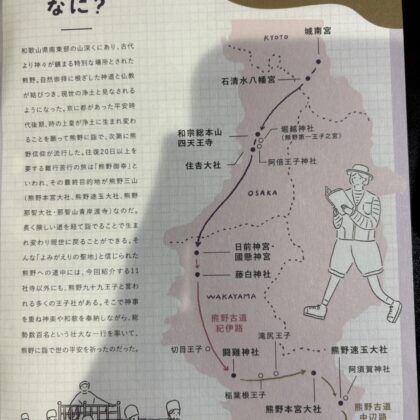 なに？
和歌山県南東部の山深くにあり、古代
より神々が鎮まる特別な場所とされた
熊野。自然崇拝に根ざした神道と仏教
が結びつき、現世の浄土と見なされる
ようになった。京に都があった平安時
代後期、時の上皇が浄土に生まれ変わ
ることを願って熊野に詣で、次第に熊
野信仰が流行した。往復20日以上を
要する難行苦行の旅は「熊野御幸」と
いわれ、その最終目的地が熊野三山
(熊野本宮大社、熊野速玉大社、熊野
那智大社・那智山青岸渡寺)なのだ。
長く険しい道を経て詣でることで生ま
れ変わり現世に戻ることができる。そ
んな「よみがえりの聖地」と信じられた
熊野への道中には、今回紹介する11
社寺以外にも、熊野九十九王子と言わ
れる多くの王子社がある。そこで神事
を重ね神楽や和歌を奉納しながら、総
勢数百名という壮大な一行を率いて、
熊野に詣で世の平安を祈ったのだった。
KYOTO
城南宮
石清水八幡宮
和宗総本山
四天王寺
堀越神社
(熊野第一王子之宮)
阿倍王子神社
住吉大社
OSAKA
日前神宮・
國懸神宮
藤白神社
WAKAYAMA
熊野古道
紀伊路
切目王子
滝尻王子
闘雞神社
稲葉根王子
熊野本宮大社
熊野速玉大社
阿須賀神社
熊野古道
中辺路